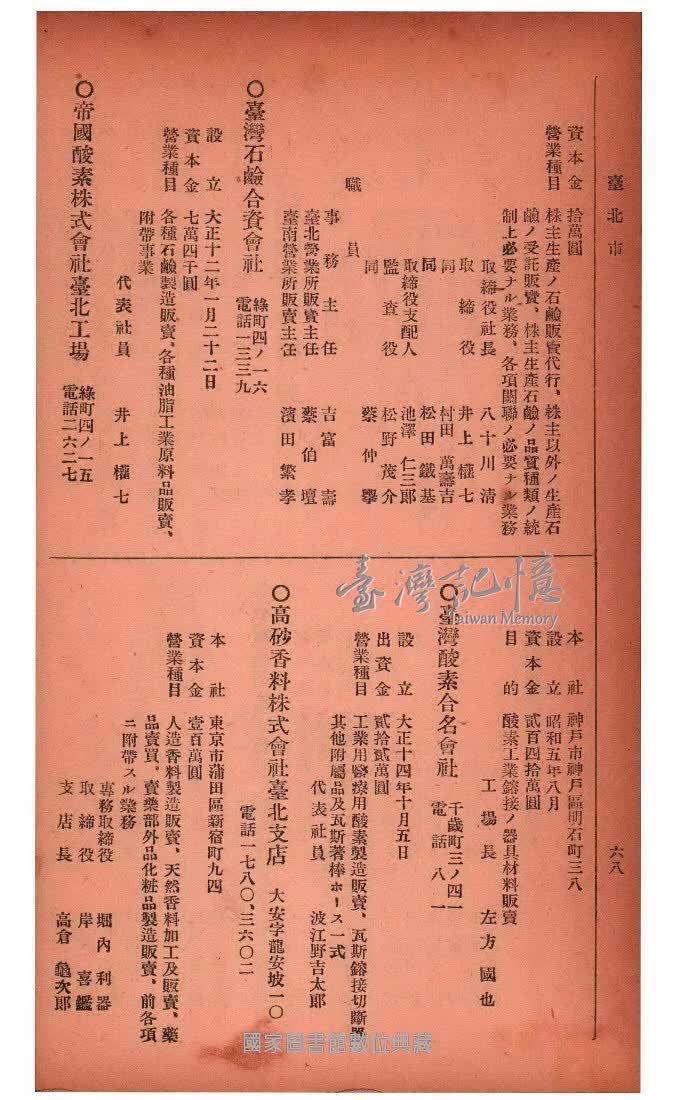 臺北市
六八
資本金 拾萬圓
營業種目 株主生產ノ石鹼販賣代行、株主以外ノ生產石
鹼ノ受託販賣、株主生產石鹼ノ品質種類ノ統
制上必要ナル業務、各項關聯ノ必要ナル業務
取締役社長 八十川清
取締役 井上權七
同 村田萬壽吉
同 松田鐵基
取締役支配人 池澤仁三郎
監查役 松野茂介
同 蔡仲擧
職員
事務主任 吉富壽
臺北營業所販賣主任 蔡伯壇
臺南營業所販賣主任 濱田繁孝
〇臺灣石鹼合資會社 綠町四ノ一六
電話一三三九
設立 大正十二年一月二十二日
資本金 七萬四千圓
營業種目 各種石鹼製造販賣、各種油脂工業原料品販賣、
附帶事業
代表社員 井上權七
〇帝國酸素株式會社臺北工場 綠町四ノ一五
電話二六二七
本社 神戶市神戶區明石町三八
設立 昭和五年八月
資本金 貳百四拾萬圓
目的 酸素工業鎔接ノ器具材料販賣
工場長 左方國也
〇臺灣酸素合名會社 千歲町三ノ四一
電話八一
設立 大正十四年十月五日
出資金 貳拾貳萬圓
營業種目 工業用醫療用酸素製造販賣、瓦斯鎔接切斷器
其他附屬品及瓦斯著棒ホース一式
代表社員 波江野吉太郎
〇高砂香料株式會社臺北支店 大安字龍安坡一〇
電話一七八〇、三六〇二
本社 東京市蒲田區新宿町九四
資本金 壹百萬圓
營業種目 人造香料製造販賣、天然香料加工及販賣、藥
品賣買、賣藥部外品化粧品製造販賣、前各項
ニ附帶スル業務
專務取締役 堀內利器
取締役 岸喜鑑
支店長 高倉龜次郎
臺灣記憶
Taiwan Memory
國家圖書館數位典藏